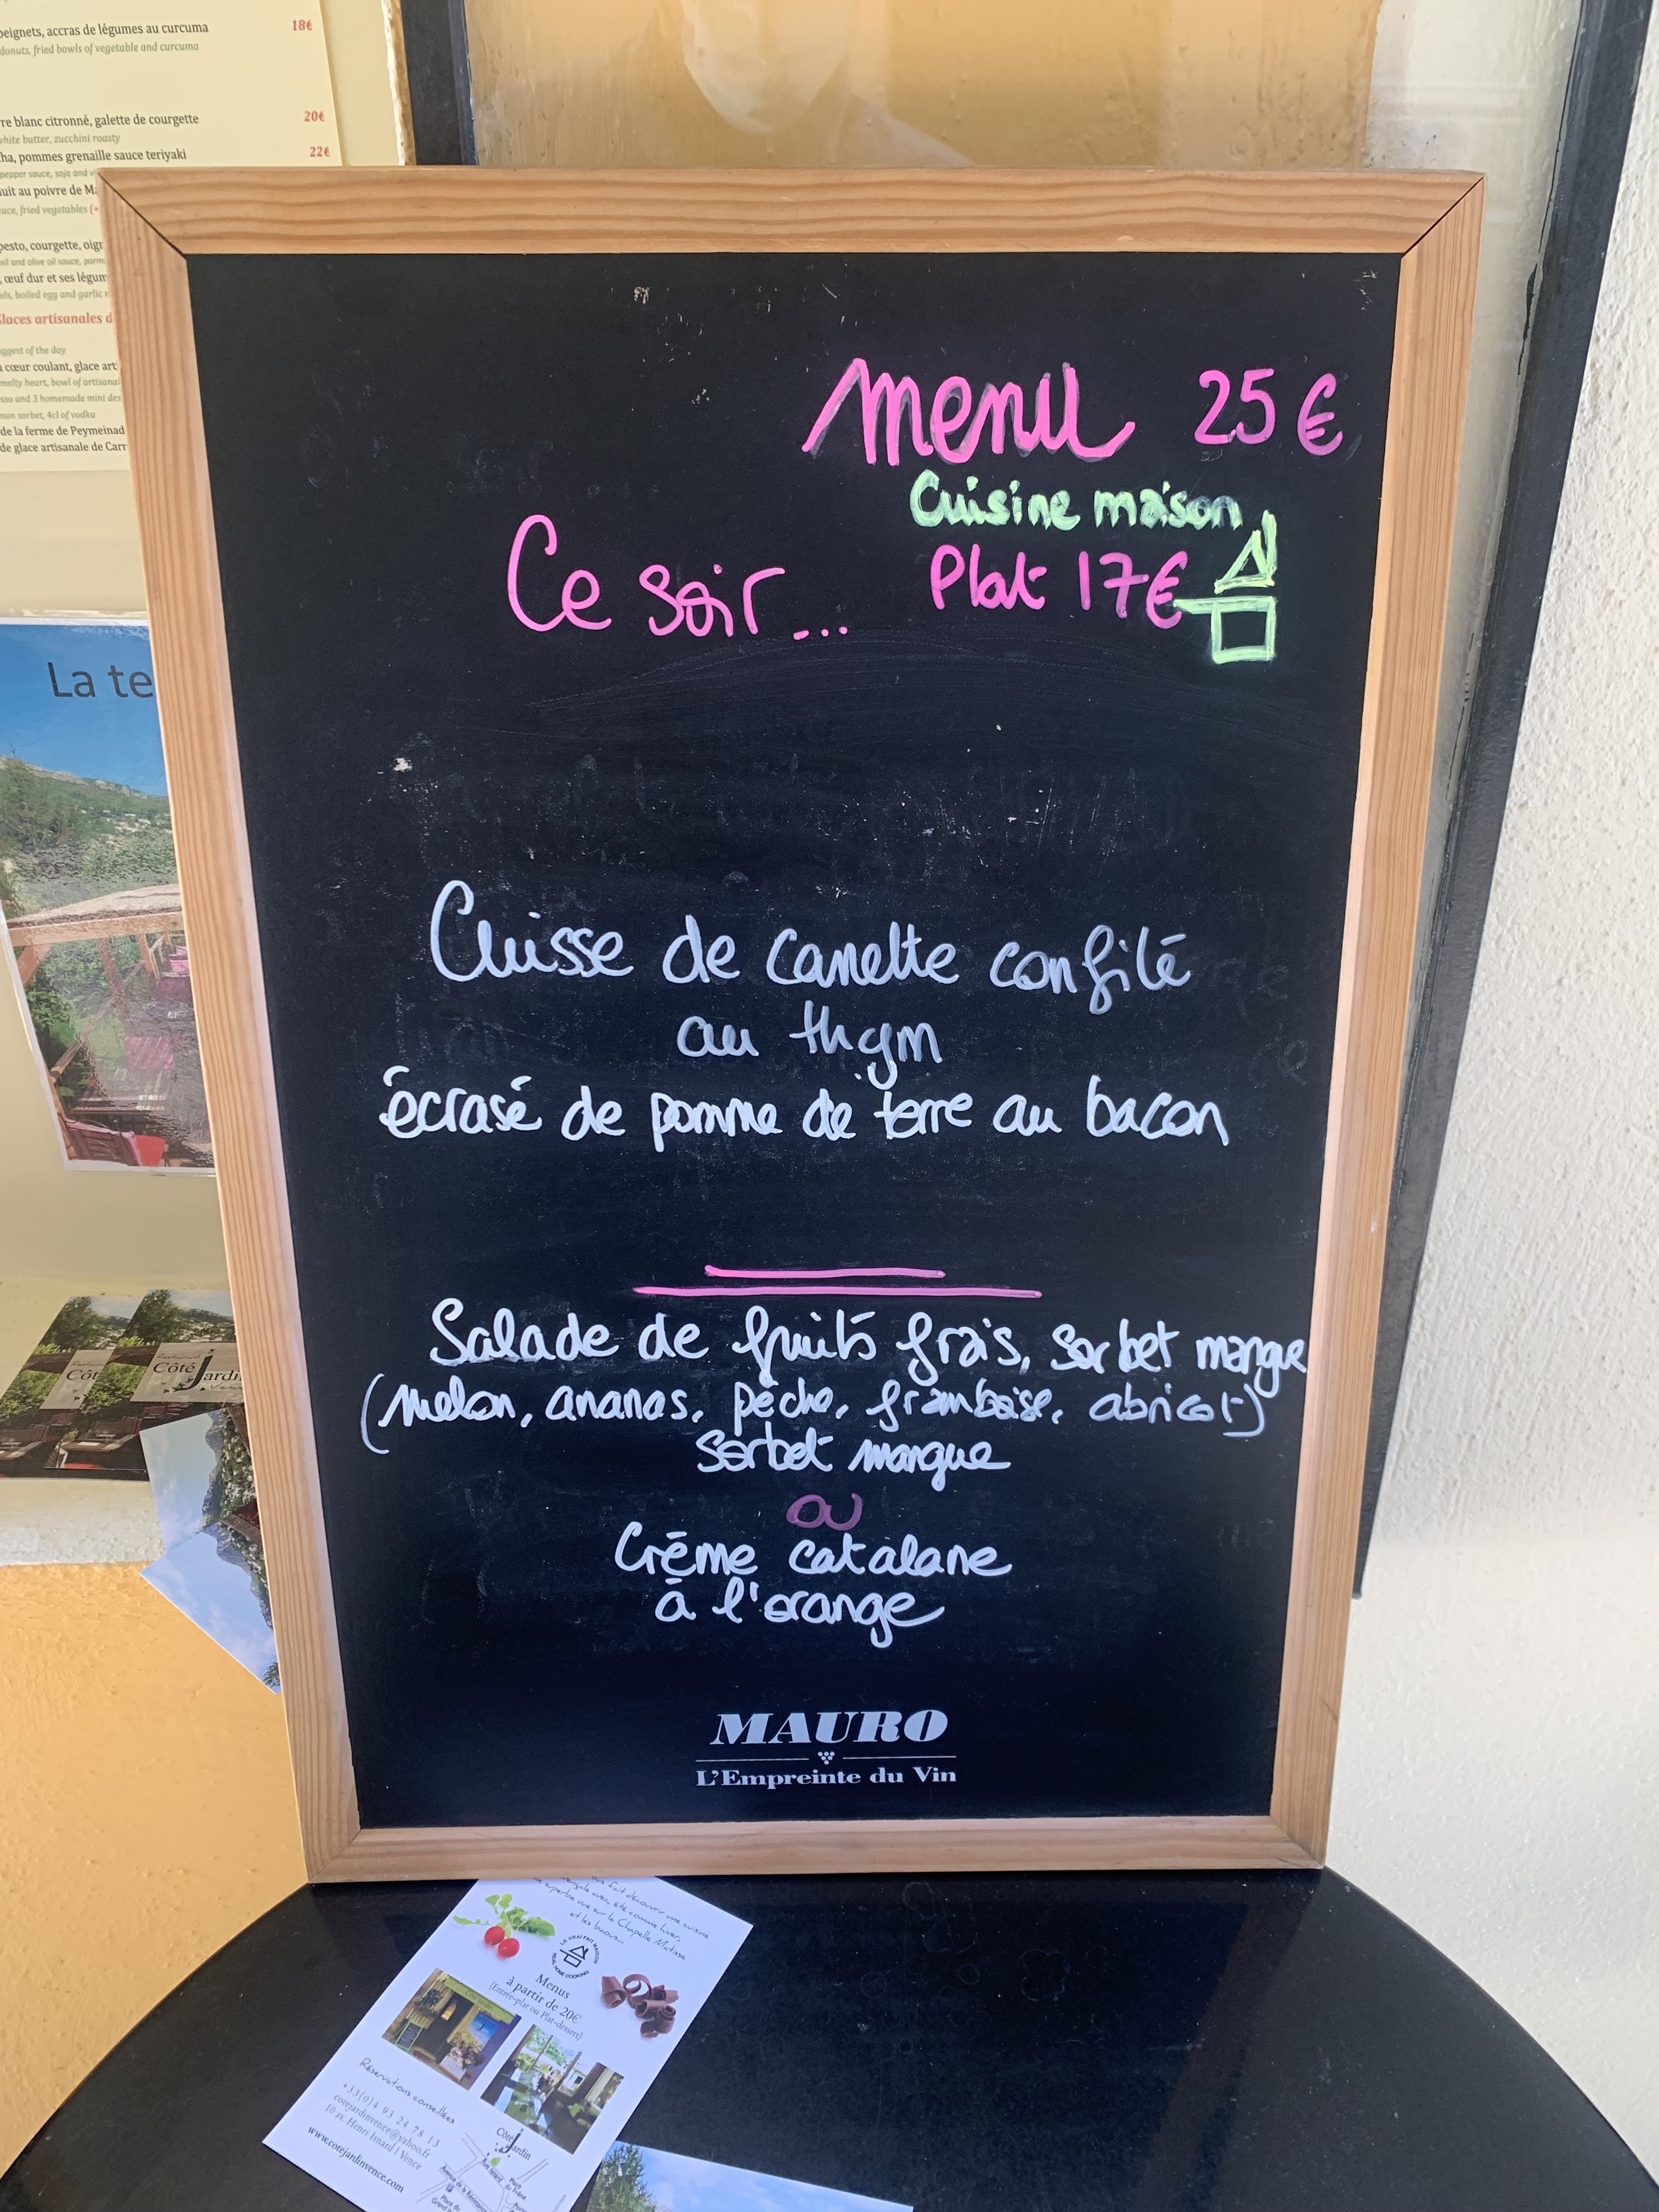 beignets, accras de légumes au curcuma 18€
donuts, fried bowls of vegetable and curcuma
re blanc citronné, galette de courgette 20€
white butter, zucchini roasty
ha, pommes grenaille sauce teriyaki 22€
pepper sauce, soja and
uit au poivre de Ma
uce, fried vegetables
pesto, courgette, oign
sil and olive oil sauce, parm
, œuf dur et ses légum
els, boiled egg and garlic
Glaces artisanales d
uggest of the day
cœur coulant, glace art
melty heart, bowl of artisanal
sso and 3 homemade mini des
mon sorbet, 4cl of vodka
de la ferme de Peymeinad
de glace artisanale de Carr
La te
menu 25€
Cuisine maison
Ce soir... Plat 17€
Cuisse de canette confité
au thym
écrasé de pomme de terre au bacon
Salade de fruits frais, sorbet mangue
(melon, ananas, pêche, framboise, abricot)
sorbet mangue
ou
Crème catalane
à l'orange
MAURO
L'Empreinte du Vin
Côt
Côté Jardi
Vence
fait découvrir une cuisine
avec, été comme hiver,
superbe vue sur la Chapelle Matisse
et les baous...
LE VRAI FAIT MAISON
REAL HOME COOKING
Menus
à partir de 20€
(Entrée-plat ou Plat-dessert)
Réservations conseillées
+33(0)4 93 24 78 13
cotejardinvence@yahoo.fr
10 av. Henri Isnard | Vence
www.cotejardinvence.com
Côté Jardin
Avenue de la Résistance
Place du
Grand